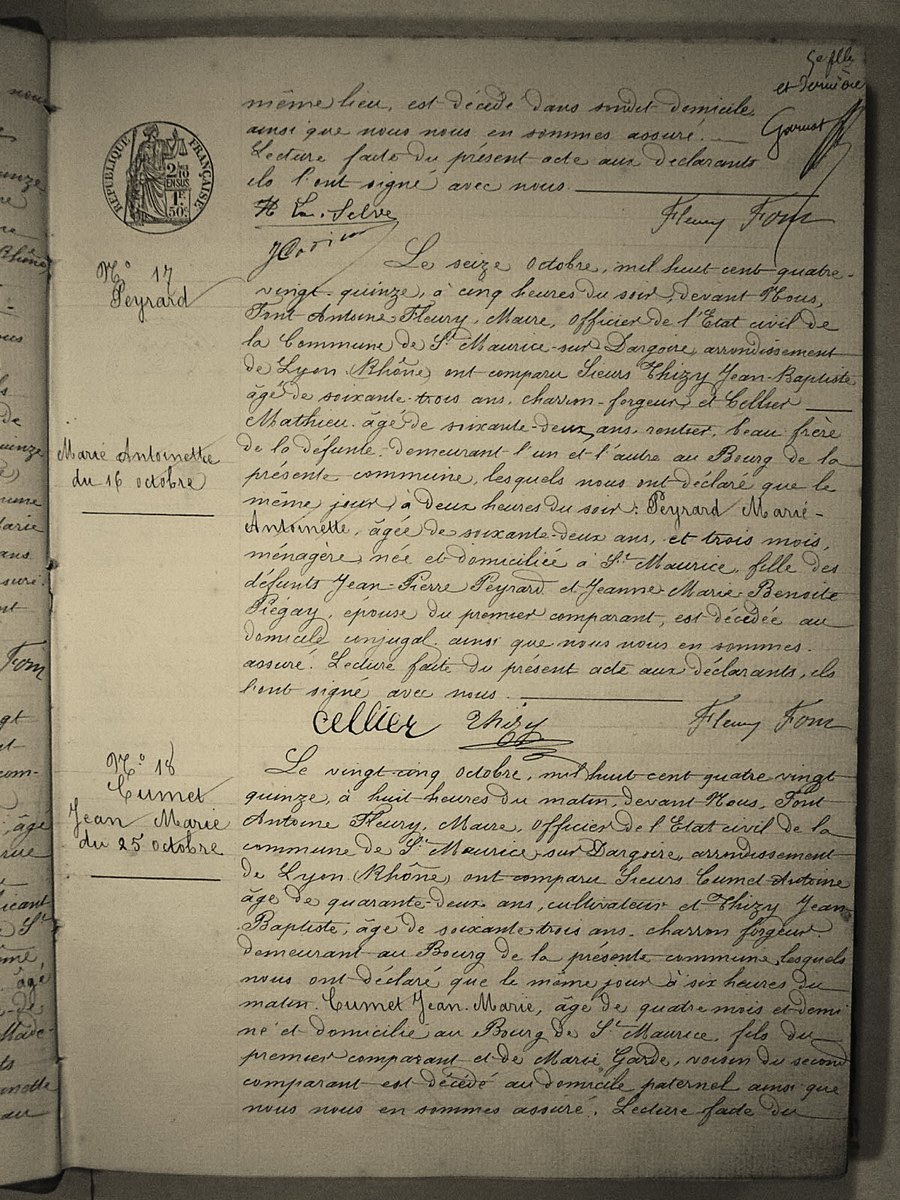 5e flle
et dernière
même lieu, est décédé dans sondit domicile
ainsi que nous nous en sommes assuré.
Lecture faite du présent acte aux déclarants
ils l'ont signé avec nous.
RÉPUBLIQUE FRANÇAISE
2/10 EN SUS
1F 50c
Selve
Fleury Font
N° 17
Peyrard
Le seize Octobre, mil huit cent quatre-
vingt-quinze, à cinq heures du soir, devant Nous,
Font Antoine Fleury, Maire, Officier de l'Etat civil de
la Commune de St Maurice-sur-Dargoire, arrondissement
de Lyon (Rhône) ont comparu Sieurs Thizy Jean-Baptiste
âgé de soixante-trois ans, charron-forgeur, et Cellier
Mathieu, âgé de soixante-deux ans, rentier, beau frère
Marie Antoinette
du 16 octobre
de la défunte, demeurant l'un et l'autre au Bourg de la
présente commune, lesquels nous ont déclaré que le
même jour, à deux heures du soir, Peyrard Marie-
Antoinette, âgée de soixante-deux ans, et trois mois,
ménagère, née et domiciliée à St Maurice, fille des
défunts Jean-Pierre Peyrard et Jeanne Marie Benoite
Piégay, epouse du premier comparant, est décédée au
domicile conjugal, ainsi que nous nous en sommes.
assuré. Lecture faite du présent acte aux déclarants, ils
l'ont signé avec nous.
Cellier Thizy Fleury Font
N° 18
Cumet
Jean Marie
du 25 octobre
Le vingt-cinq Octobre, mil huit cent quatre vingt
quinze, à huit heures du matin, devant Nous, Font
Antoine Fleury, Maire, Officier de l'Etat civil de la
commune de St Maurice-sur-Dargoire, arrondissement
de Lyon (Rhône) ont comparu Sieurs Cumet Antoine
âgé de quarante-deux ans, cultivateur et Thizy Jean
Baptiste, âgé de soixante trois ans, charron forgeur,
demeurant au Bourg de la présente commune, lesquels
nous ont déclaré que le même jour à six heures du
matin, Cumet Jean Marie, âgé de quatre mois et demi
né et domicilié au Bourg de St Maurice, fils du
premier comparant et de Marie Garde, voisin du second
comparant est décédé au domicile paternel ainsi que
nous nous en sommes assuré. Lecture faite du